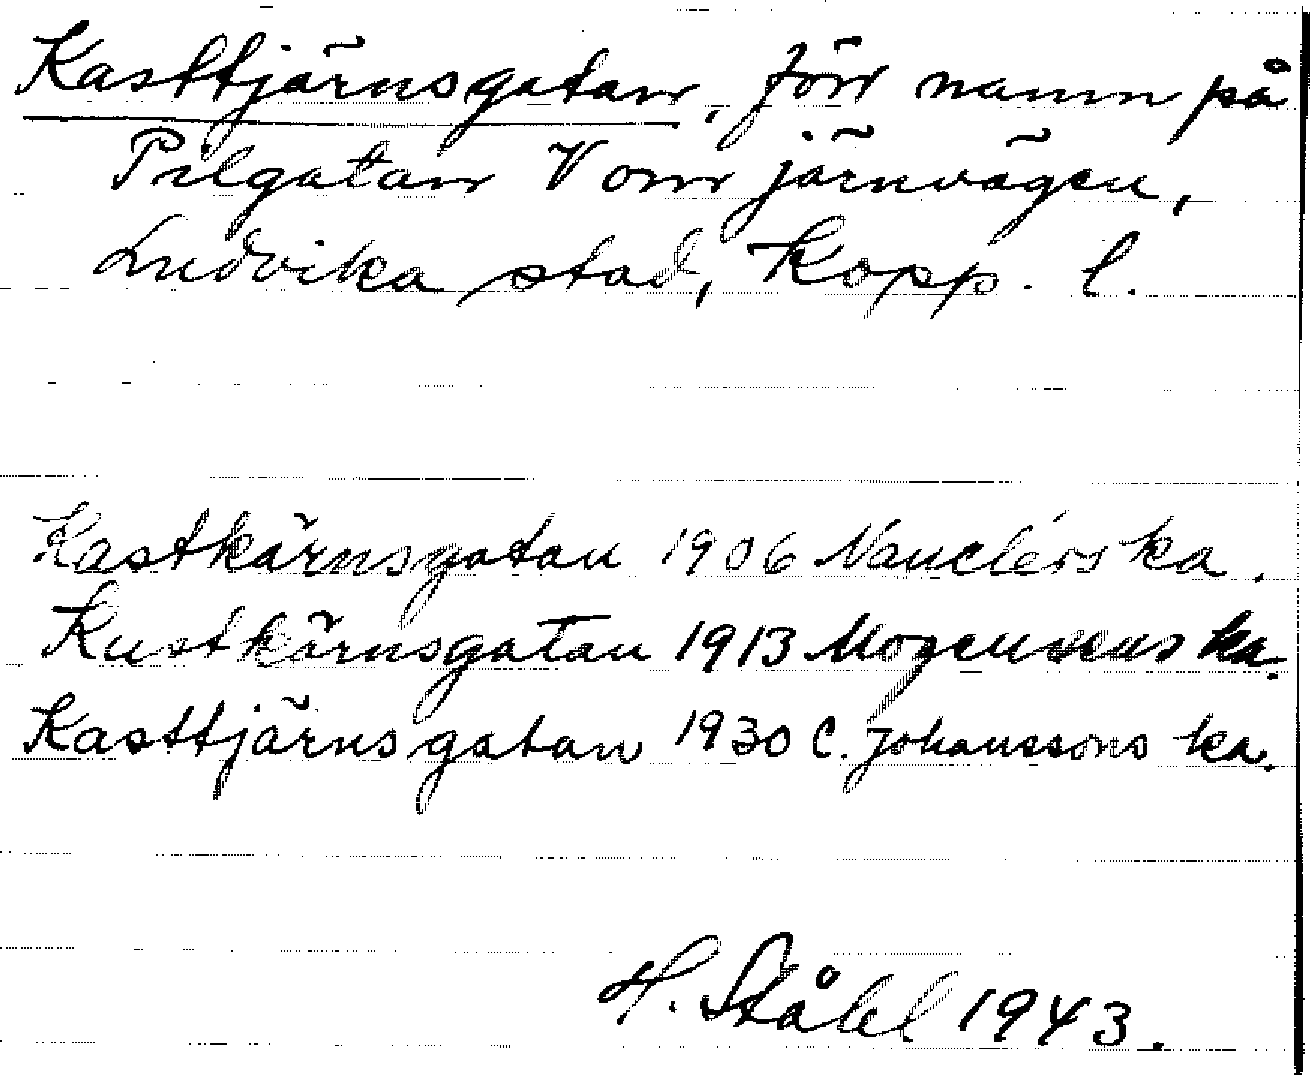 Kasttjärnsgatan, förr namn på
Pilgatan V om järnvägen,
Ludvika stad, Kopp. l.
Kastkärnsgatan 1906 Nauclérs ka.
Kustkärnsgatan 1913 Mogensens ka.
Kasttjärnsgatan 1930 C. Johanssons ka.
H. Ståhl 1943.